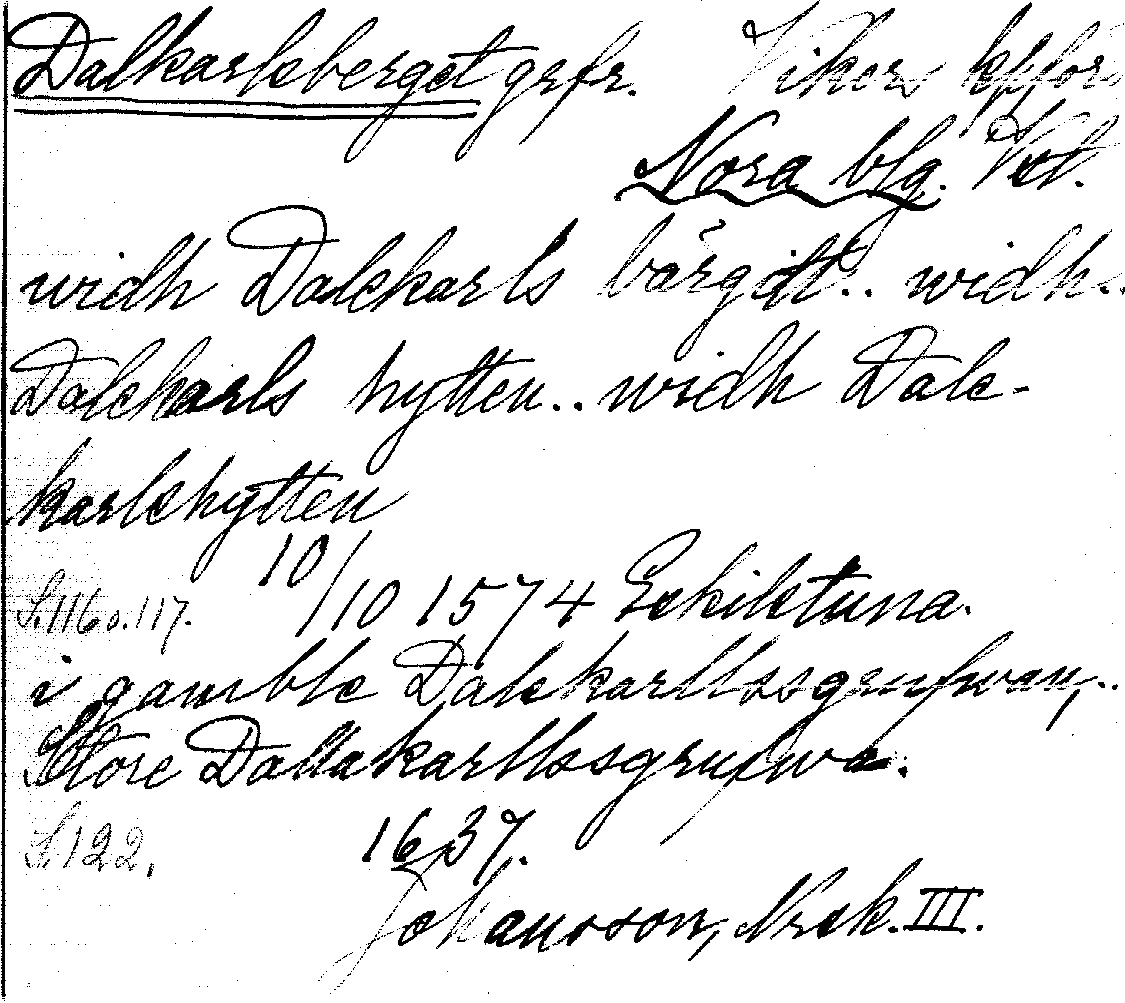 Dalkarlsberget grfr. Vikers kpförs
Nora blg. Vstl.
widh Dalekarls bärgitt.. widh..
Dalekarls hytten.. widh Dale-
karlehytten
10/10 1574 Eskilstuna.
S. 116 o. 117.
i gamble Dalekarllssgrufwan,..
Store Dallakarllssgrufwa.
S. 122. 1637.
Johansson, Nrek. III.